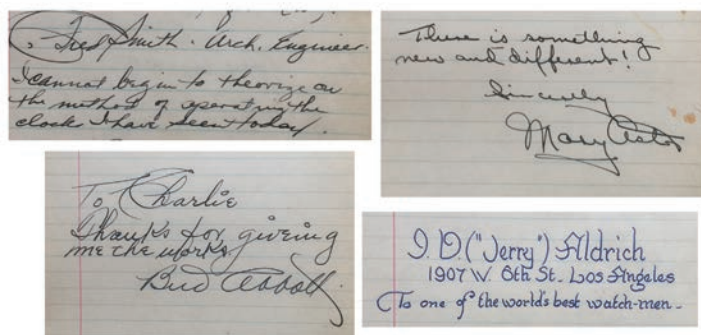 . Fred Smith. Arch. Engineer.
I cannot begin to theorize on
the method of operating the
clocks I have seen today.
There is something
new and different!
Sincerely
Mary Astor
To Charlie
Thanks for giveing
me the works
Bud Abbott
I. D. ("Jerry") Aldrich
1907 W. 6th St. Los Angeles
To one of the world's best watch-men.